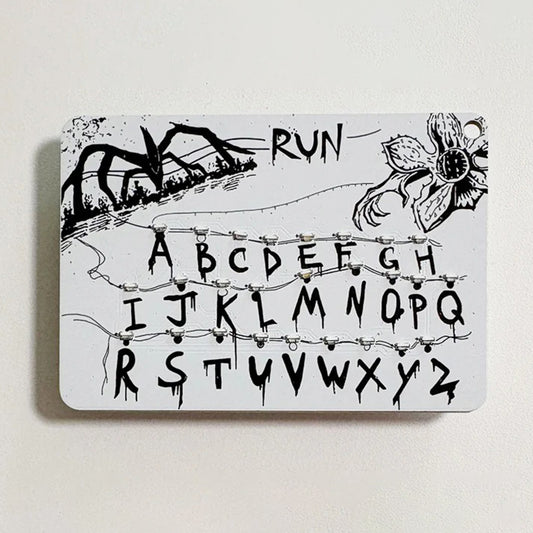 RUN
A B C D E F G H
I J K L M N O P Q
R S T U V W X Y Z